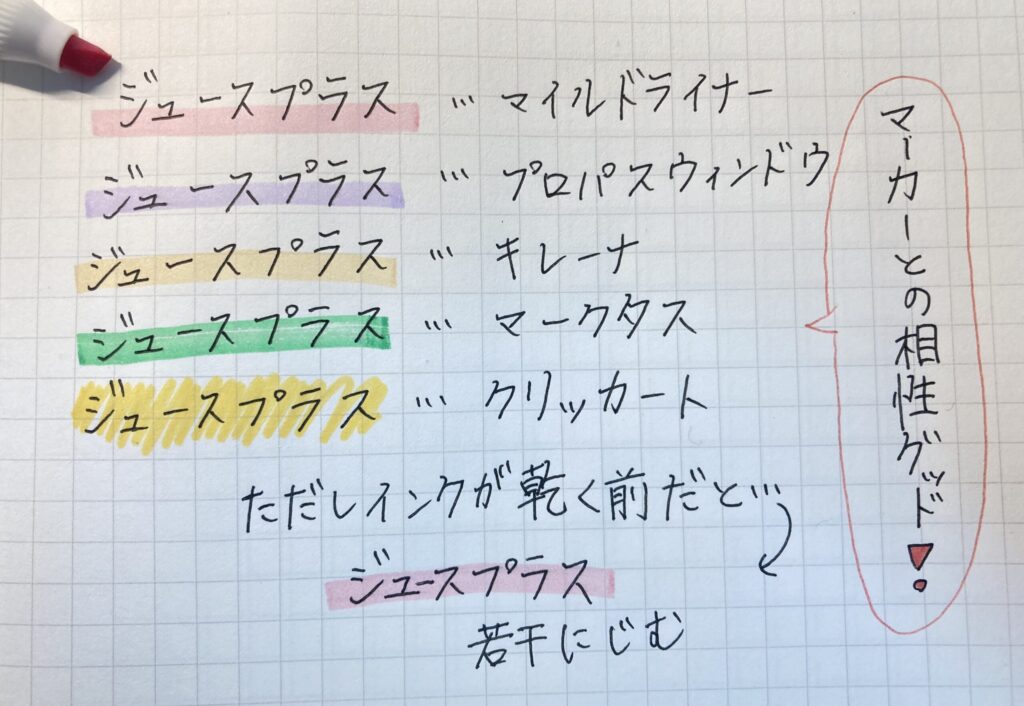 ジュースプラス … マイルドライナー
ジュースプラス … プロパスウィンドウ
ジュースプラス … キレーナ
ジュースプラス … マークタス
ジュースプラス … クリッカート
マーカーとの相性グッド!
ただしインクが乾く前だと…
ジュースプラス
若干にじむ